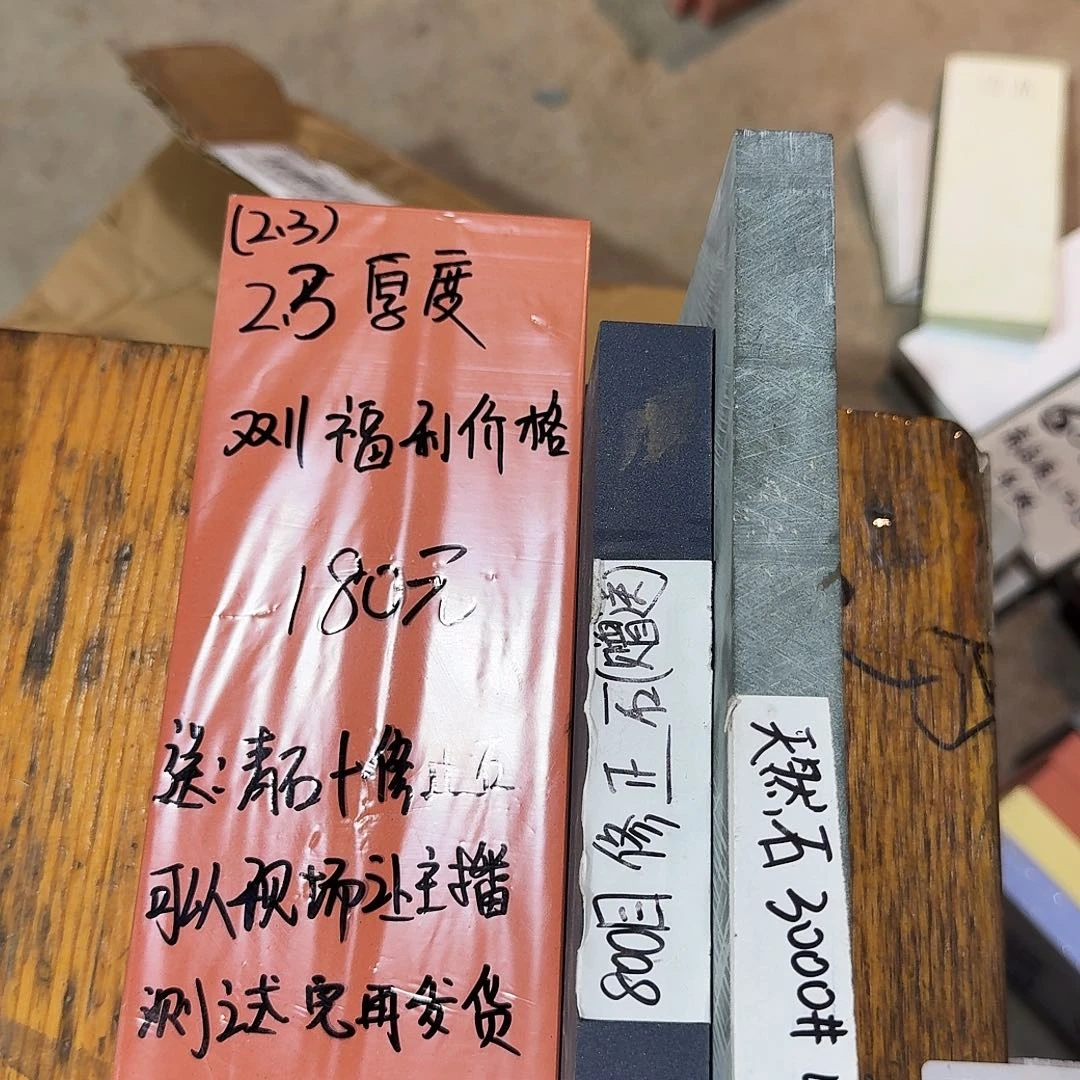 (2.3)
2.3厚度
双11福利价格
180元
送:青石十修正石
可以现场让主播
测试完再发货
800目修正石(赠送)
天然石3000#